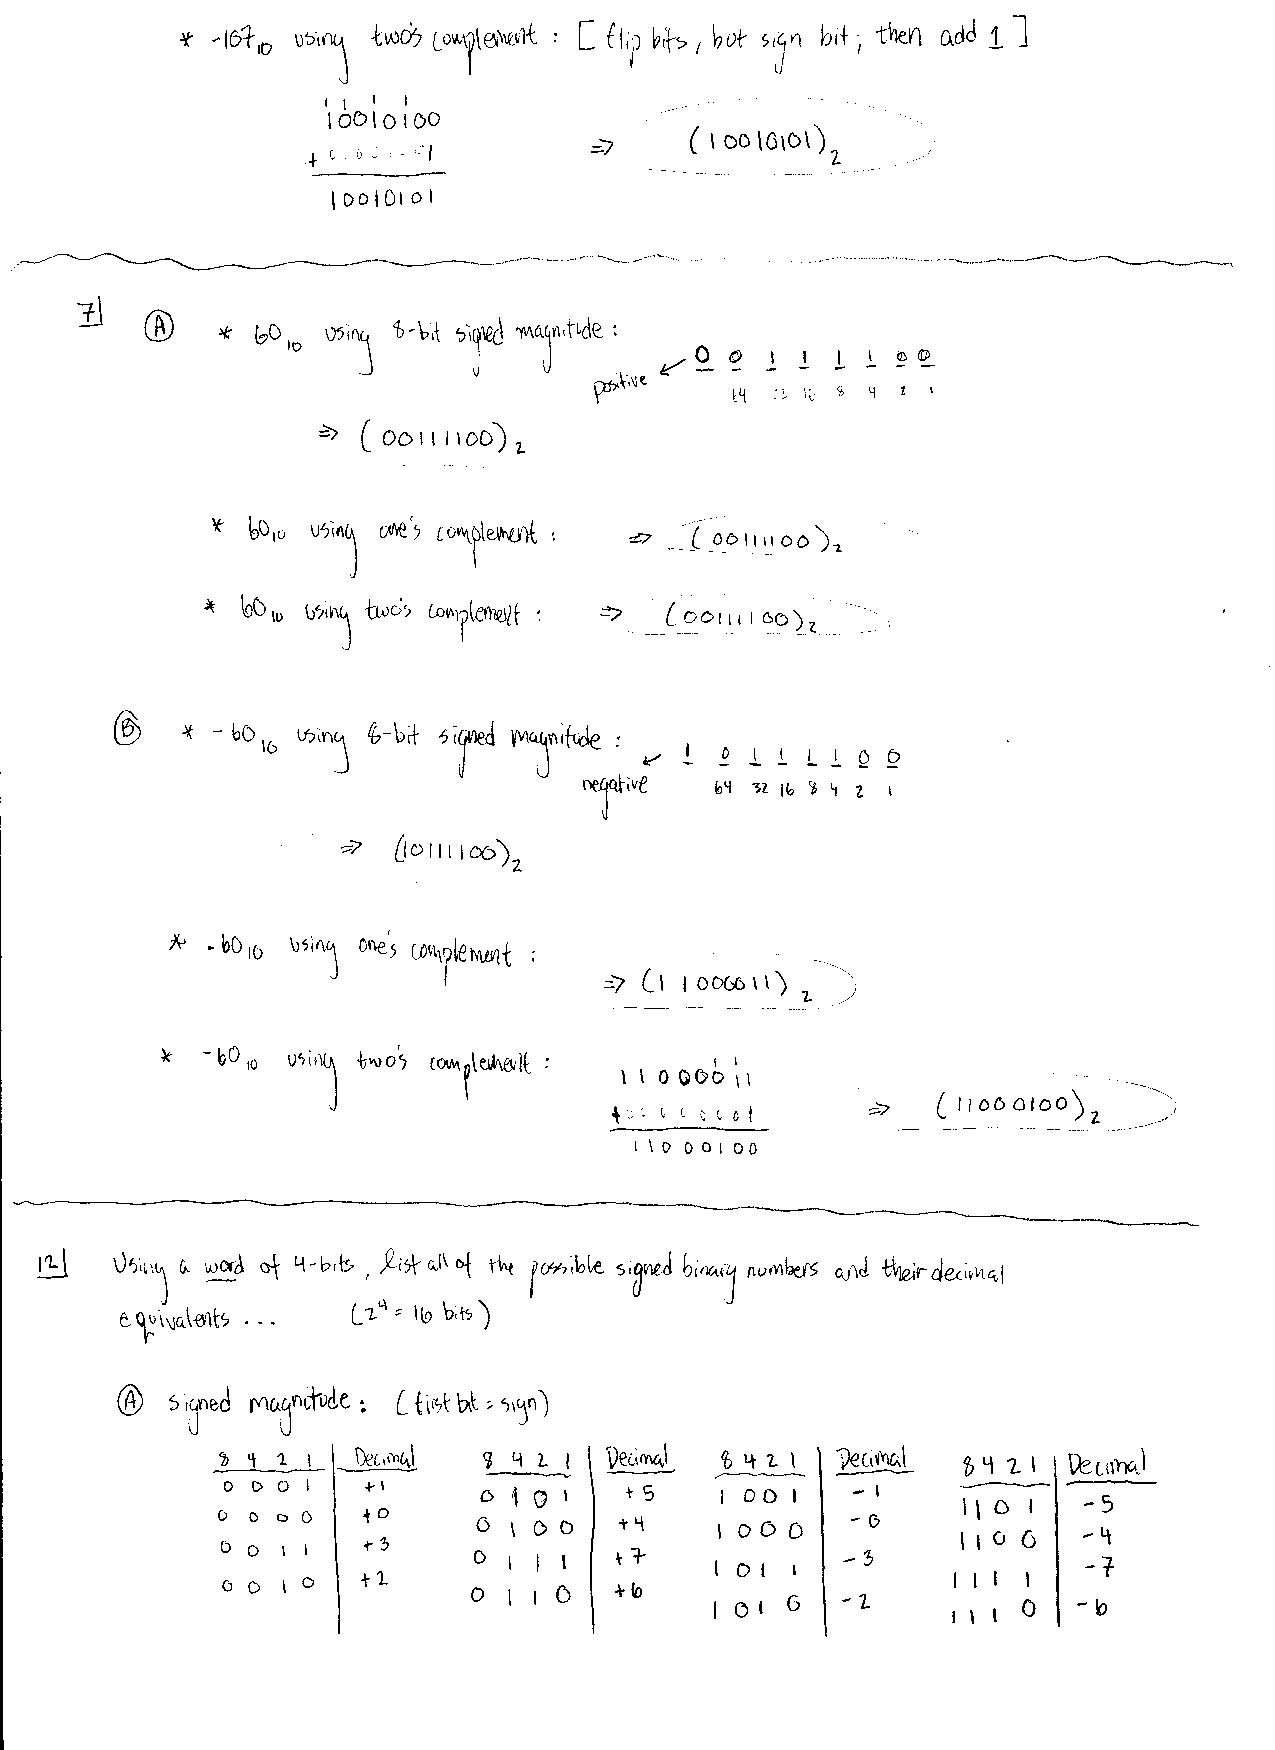 * -107₁₀ using two's complement : [ flip bits, but sign bit, then add 1 ]
10010100
+ 1
10010101
⇒ (10010101)₂
7| Ⓐ * 60₁₀ using 8-bit signed magnitude :
positive ↙ 0 0 1 1 1 1 0 0
64 32 16 8 4 2 1
⇒ (00111100)₂
* 60₁₀ using one's complement : ⇒ (00111100)₂
* 60₁₀ using two's complement : ⇒ (00111100)₂
Ⓑ * -60₁₀ using 8-bit signed magnitude :
negative ↙ 1 0 1 1 1 1 0 0
64 32 16 8 4 2 1
⇒ (10111100)₂
* -60₁₀ using one's complement :
⇒ (11000011)₂
* -60₁₀ using two's complement :
1 1
11000011
+00000001
11000100
⇒ (11000100)₂
12| Using a word of 4-bits, list all of the possible signed binary numbers and their decimal
equivalents ... (2⁴ = 16 bits)
Ⓐ signed magnitude : (first bit = sign)
8 4 2 1 | Decimal 8 4 2 1 | Decimal 8 4 2 1 | Decimal 8 4 2 1 | Decimal
0 0 0 1 | +1 0 1 0 1 | +5 1 0 0 1 | -1 1 1 0 1 | -5
0 0 0 0 | +0 0 1 0 0 | +4 1 0 0 0 | -0 1 1 0 0 | -4
0 0 1 1 | +3 0 1 1 1 | +7 1 0 1 1 | -3 1 1 1 1 | -7
0 0 1 0 | +2 0 1 1 0 | +6 1 0 1 0 | -2 1 1 1 0 | -6